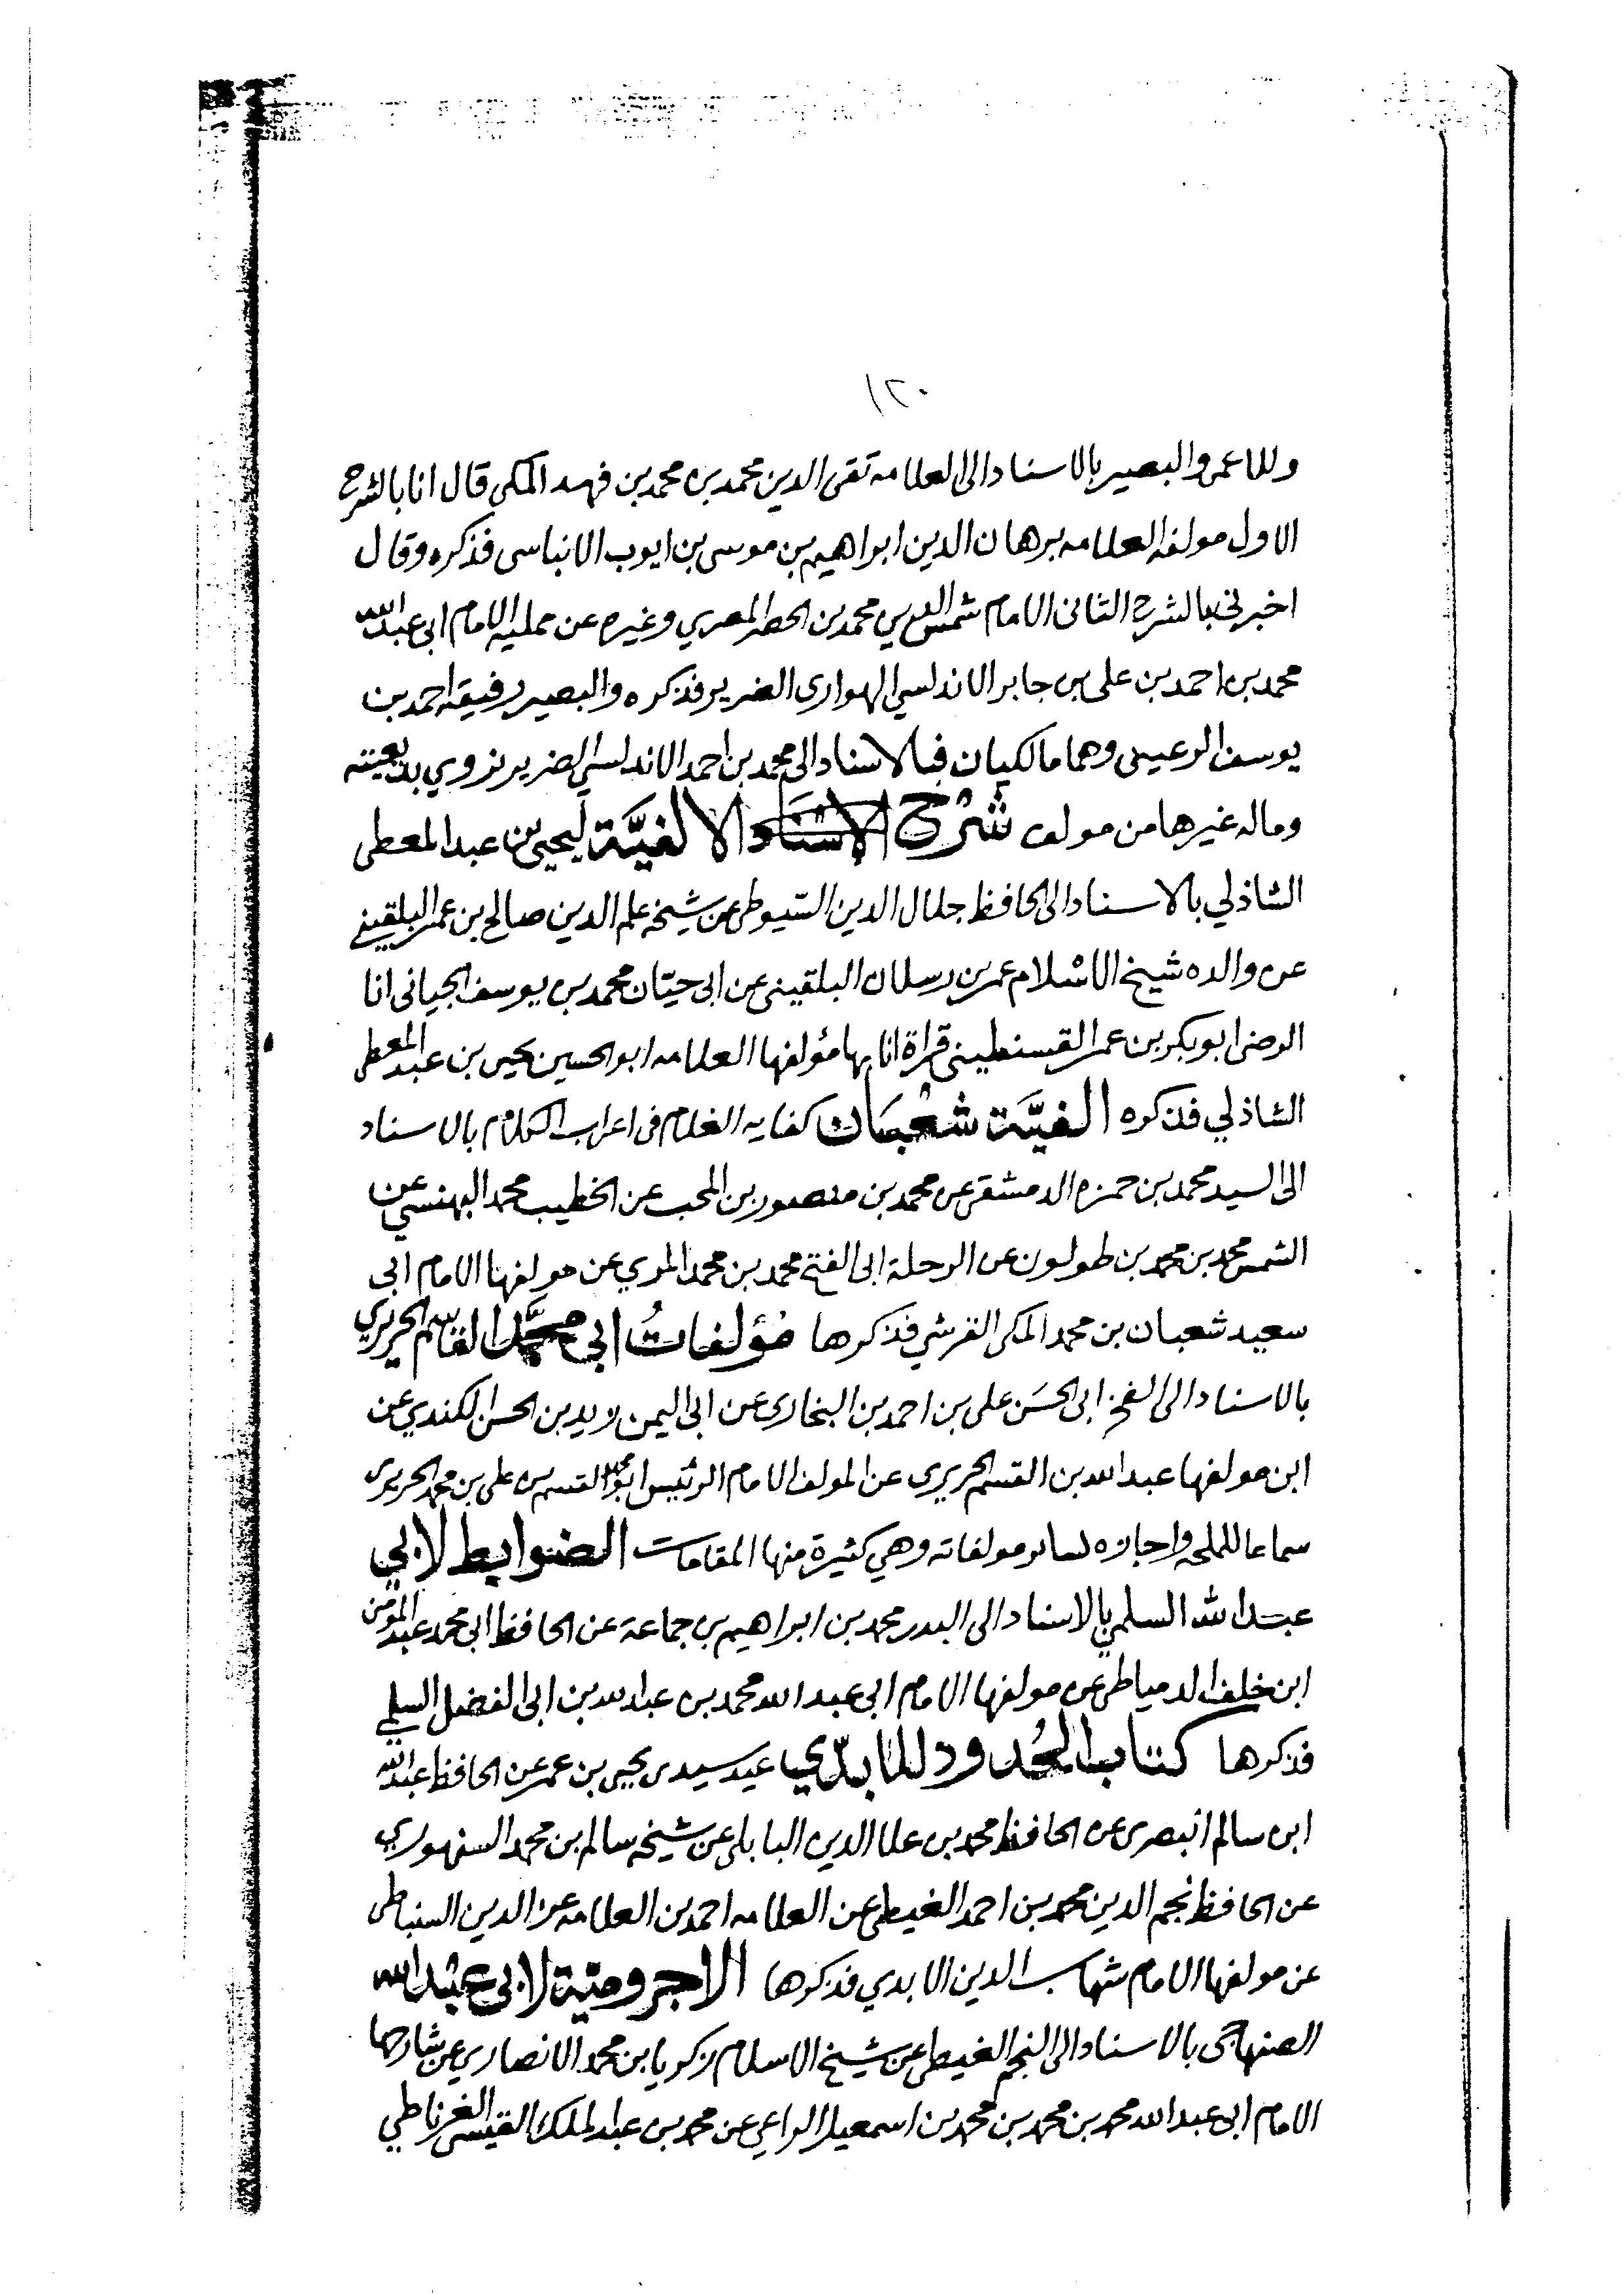 ١٢٠
وللاعمى والبصير بالاسناد الى العلامه تقى الدين محمد بن محمد بن فهد المكى قال انا بالشرح
الاول مولفه العلامه برهان الدين ابراهيم بن موسى بن ايوب الانباسى فذكره وقال
اخبرنى بالشرح الثانى الامام شمس الدين محمد بن المصري وغيره عن ممليه الامام ابى عبد الله
محمد بن احمد بن على بن جابر الاندلسي الهوارى الضرير فذكره والبصير رفيقه احمد بن
يوسف الرعينى وهما مالكيان فبالاسناد الى محمد بن احمد الاندلسي الضرير نروي بديعيته
وماله غيرها من مولف شرح الاسناد الالفيَّة ليحيى بن عبد المعطى
الشاذلي بالاسناد الى الحافظ جلال الدين السّيوطى عن شيخه علم الدين صالح بن عمر البلقينى
عن والده شيخ الاسلام عمر بن رسلان البلقينى عن ابى حيّان محمد بن يوسف الجيانى انا
الرضى ابو بكر بن عمر القسنطينى قراة انا بها مؤلفها العلامه ابو الحسين يحيى بن عبد المعطى
الشاذلي فذكره الفيَّة شعبان كفايه الغلام فى اعراب الكلام بالاسناد
الى السيد محمد بن حمزه الدمشقى عن محمد بن منصور بن المحب عن الخطيب محمد البهنسي عن
الشمس محمد بن محمد بن طولون عن الرحلة ابى الفتح محمد بن محمد المزي عن مولفها الامام ابى
سعيد شعبان بن محمد المكى القرشي فذكرها مؤلفاتُ ابى محمَّد القاسم الحريري
بالاسناد الى الفخر ابى الحسَن على بن احمد بن البخارى عن ابى اليمن زيد بن الحسن الكندي عن
ابن مولفها عبد الله بن القسم الحريري عن المولف الامام الرئيس ابو محمد القسم بن على بن محمد الحريرى
سماعا للملحه واجازه لسائر مولفاته وهي كثيرة منها المقامات الضوابط لابي
عبد الله السلمي بالاسناد الى البدر محمد بن ابراهيم بن جماعة عن الحافظ ابى محمد عبد المؤمن
ابن خلف الدمياطى عن مولفها الامام ابى عبد الله محمد بن عبد الله بن ابى الفضل السلمي
فذكرها كتاب الحُدود للابدّي عن سيدى يحيى بن عمر عن الحافظ عبد الله
ابن سالم البصرى عن الحافظ محمد بن علا الدين البابلى عن شيخه سالم بن محمد السنهوري
عن الحافظ نجم الدين محمد بن احمد الغيطى عن العلامه احمد بن العلامه عز الدين السنباطى
عن مولفها الامام شهاب الدين الابدي فذكرها الاجروميّة لابى عبد الله
الصنهاجى بالاسناد الى النجم الغيطى عن شيخ الاسلام زكريا بن محمد الانصاري عن شارحها
الامام ابى عبد الله محمد بن محمد بن محمد بن اسمعيل الراعي عن محمد بن عبد الملك القيسى الغرناطي